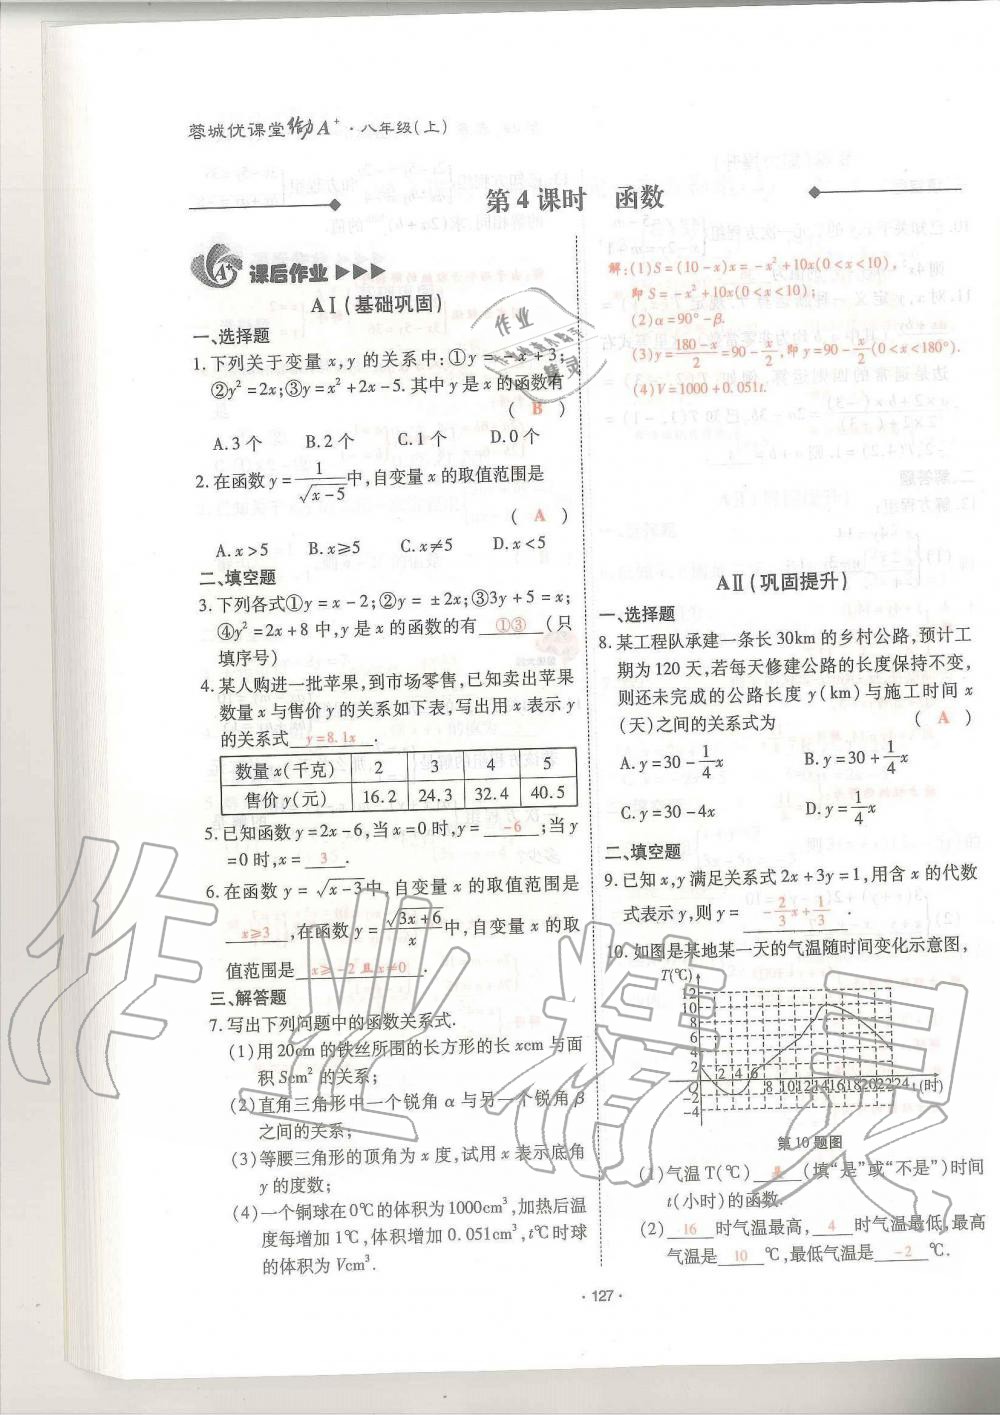 蓉城优课堂 A⁺·八年级(上)
第4课时 函数
课后作业
AⅠ(基础巩固)
一、选择题
1.下列关于变量x,y的关系中:①y=-x+3;
②y²=2x;③y=x²+2x-5.其中y是x的函数有
( B )
A.3个 B.2个 C.1个 D.0个
2.在函数y=1/√(x-5)中,自变量x的取值范围是
( A )
A.x>5 B.x≥5 C.x≠5 D.x<5
二、填空题
3.下列各式①y=x-2;②y=±2x;③3y+5=x;
④y²=2x+8中,y是x的函数的有 ①③ (只
填序号)
4.某人购进一批苹果,到市场零售,已知卖出苹果
数量x与售价y的关系如下表,写出用x表示y
的关系式 y=8.1x .
数量x(千克) 2 3 4 5
售价y(元) 16.2 24.3 32.4 40.5
5.已知函数y=2x-6,当x=0时,y= -6 ;当y
=0时,x= 3 .
6.在函数y=√(x-3)中,自变量x的取值范围是
x≥3 ,在函数y=√(3x+6)/x中,自变量x的取
值范围是 x≥-2且x≠0 .
三、解答题
7.写出下列问题中的函数关系式.
(1)用20cm的铁丝所围的长方形的长xcm与面
积Scm²的关系;
(2)直角三角形中一个锐角α与另一个锐角β
之间的关系;
(3)等腰三角形的顶角为x度,试用x表示底角
y的度数;
(4)一个铜球在0℃的体积为1000cm³,加热后温
度每增加1℃,体积增加0.051cm³,t℃时球
的体积为Vcm³.
解:(1)S=(10-x)x=-x²+10x(0<x<10),
即S=-x²+10x(0<x<10);
(2)α=90°-β.
(3)y=(180-x)/2=90-x/2,即y=90-x/2(0<x<180°).
(4)V=1000+0.051t.
AⅡ(巩固提升)
一、选择题
8.某工程队承建一条长30km的乡村公路,预计工
期为120天,若每天修建公路的长度保持不变,
则还未完成的公路长度y(km)与施工时间x
(天)之间的关系式为 ( A )
A.y=30-1/4x B.y=30+1/4x
C.y=30-4x D.y=1/4x
二、填空题
9.已知x,y满足关系式2x+3y=1,用含x的代数
式表示y,则y= -2/3x+1/3 .
10.如图是某地某一天的气温随时间变化示意图,
T(℃)
12
10
8
6
4
2
2 4 6 8 10 12 14 16 18 20 22 24 t(时)
-2
-4
第10题图
(1)气温T(℃) 是 (填“是”或“不是”)时间
t(小时)的函数.
(2) 16 时气温最高, 4 时气温最低,最高
气温是 10 ℃,最低气温是 -2 ℃.
·127·
作业精灵